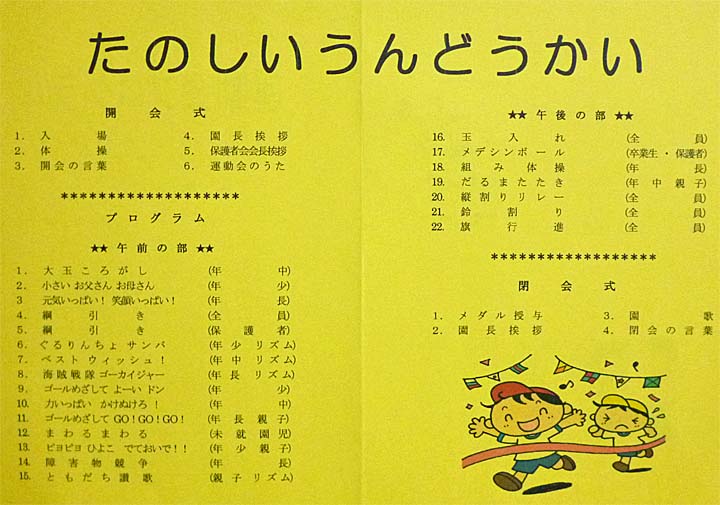 たのしいうんどうかい
開会式
1. 入場
2. 体操
3. 開会の言葉
4. 園長挨拶
5. 保護者会会長挨拶
6. 運動会のうた
*******************
プログラム
★★ 午前の部 ★★
1. 大玉ころがし (年中)
2. 小さい お父さん お母さん (年少)
3 元気いっぱい！ 笑顔いっぱい！ (年長)
4. 綱引き (全員)
5. 綱引き (保護者)
6. ぐるりんちょ サンバ (年少 リズム)
7. ベスト ウィッシュ！ (年中 リズム)
8. 海賊戦隊 ゴーカイジャー (年長 リズム)
9. ゴールめざして よーい ドン (年少)
10. 力いっぱい かけぬけろ！ (年中)
11. ゴールめざして GO！GO！GO！ (年長親子)
12. まわるまわる (未就園児)
13. ピヨピヨ ひよこ でておいで！！ (年少親子)
14. 障害物競争 (年長)
15. ともだち讃歌 (親子リズム)
★★ 午後の部 ★★
16. 玉入れ (全員)
17. メデシンボール (卒業生・保護者)
18. 組み体操 (年長)
19. だるまたたき (年中親子)
20. 縦割りリレー (全員)
21. 鈴割り (全員)
22. 旗行進 (全員)
******************
閉会式
1. メダル授与
2. 園長挨拶
3. 園歌
4. 閉会の言葉